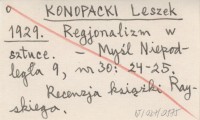 KONOPACKI Leszek
1929. Regjonalizm w
sztuce. – Myśl Niepod-
ległą 9, nr 30: 24-25.
Recenzja książki Ray-
skiego.